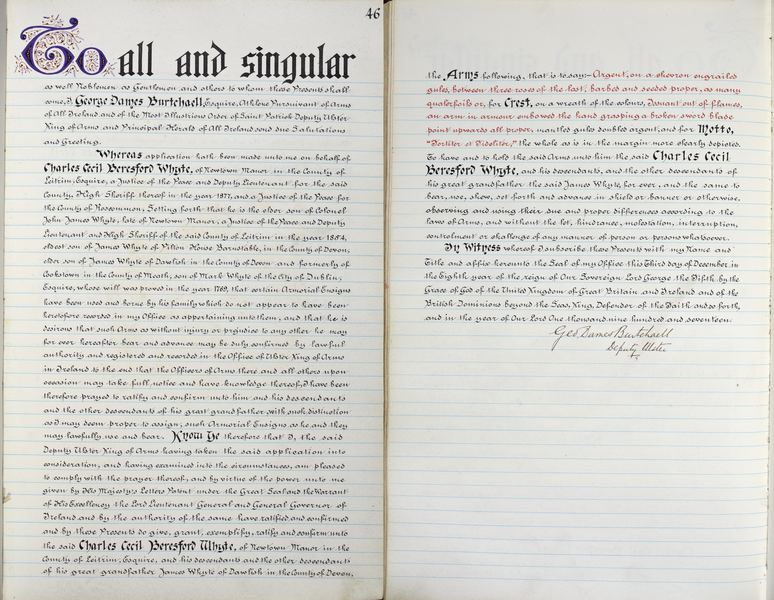 46
To all and singular
as well Noblemen as Gentlemen and others to whom these Presents shall
come, I, George Dames Burtchaell, Esquire, Athlone Pursuivant of Arms
of All Ireland and of the Most Illustrious Order of Saint Patrick Deputy Ulster
King of Arms and Principal Herald of All Ireland send due Salutations
and Greeting.
Whereas application hath been made unto me on behalf of
Charles Cecil Beresford Whyte, of Newtown Manor in the County of
Leitrim, Esquire, a Justice of the Peace and Deputy Lieutenant for the said
County, High Sheriff thereof in the year 1877, and a Justice of the Peace for
the County of Roscommon, Setting forth that he is the elder son of Colonel
John James Whyte, late of Newtown Manor, a Justice of the Peace and Deputy
Lieutenant and High Sheriff of the said County of Leitrim in the year 1854,
eldest son of James Whyte of Pilton House Barnstable, in the County of Devon,
elder son of James Whyte of Dawlish in the County of Devon and formerly of
Cookstown in the County of Meath, son of Mark Whyte of the City of Dublin,
Esquire, whose will was proved in the year 1769, that certain Armorial Ensigns
have been used and borne by his family which do not appear to have been
heretofore recorded in my Office as appertaining unto them, and that he is
desirous that such Arms as without injury or prejudice to any other he may
for ever hereafter bear and advance may be duly confirmed by lawful
authority and registered and recorded in the Office of Ulster King of Arms
in Ireland to the end that the Officers of Arms there and all others upon
occasion may take full notice and have knowledge thereof, I have been
therefore prayed to ratify and confirm unto him and his descendants
and the other descendants of his great grandfather with such distinction
as I may deem proper to assign, such Armorial Ensigns as he and they
may lawfully use and bear. Know Ye therefore that I, the said
Deputy Ulster King of Arms having taken the said application into
consideration, and having examined into the circumstances, am pleased
to comply with the prayer thereof, and by virtue of the power unto me
given by His Majesty's Letters Patent under the Great Seal and the Warrant
of His Excellency the Lord Lieutenant General and General Governor of
Ireland and by the authority of the same have ratified and confirmed
and by these Presents do give, grant, exemplify, ratify and confirm unto
the said Charles Cecil Beresford Whyte, of Newtown Manor in the
County of Leitrim, Esquire, and his descendants and the other descendants
of his great grandfather James Whyte of Dawlish in the County of Devon,
the Arms following, that is to say:- Argent, on a chevron engrailed
gules, between three roses of the last, barbed and seeded proper, as many
quatrefoils or, for Crest, on a wreath of the colours, Issuant out of flames,
an arm in armour embowed the hand grasping a broken sword blade
point upwards all proper, mantled gules doubled argent, and for Motto,
"Fortiter et Fideliter," the whole as is in the margin more clearly depicted.
To have and to hold the said Arms unto him the said Charles Cecil
Beresford Whyte, and his descendants, and the other descendants of
his great grandfather the said James Whyte, for ever, and the same to
bear, use, shew, set forth and advance in shield or banner or otherwise,
observing and using their due and proper differences according to the
laws of Arms, and without the let, hindrance, molestation, interruption,
controlment or challenge of any manner of person or persons whatsoever.
In Witness whereof I subscribe these Presents with my Name and
Title and affix hereunto the Seal of my Office this Third day of December in
the Eighth year of the reign of Our Sovereign Lord George the Fifth by the
Grace of God of the United Kingdom of Great Britain and Ireland and of the
British Dominions beyond the Seas, King, Defender of the Faith and so forth,
and in the year of Our Lord One thousand nine hundred and seventeen.
Geo. Dames Burtchaell
Deputy Ulster